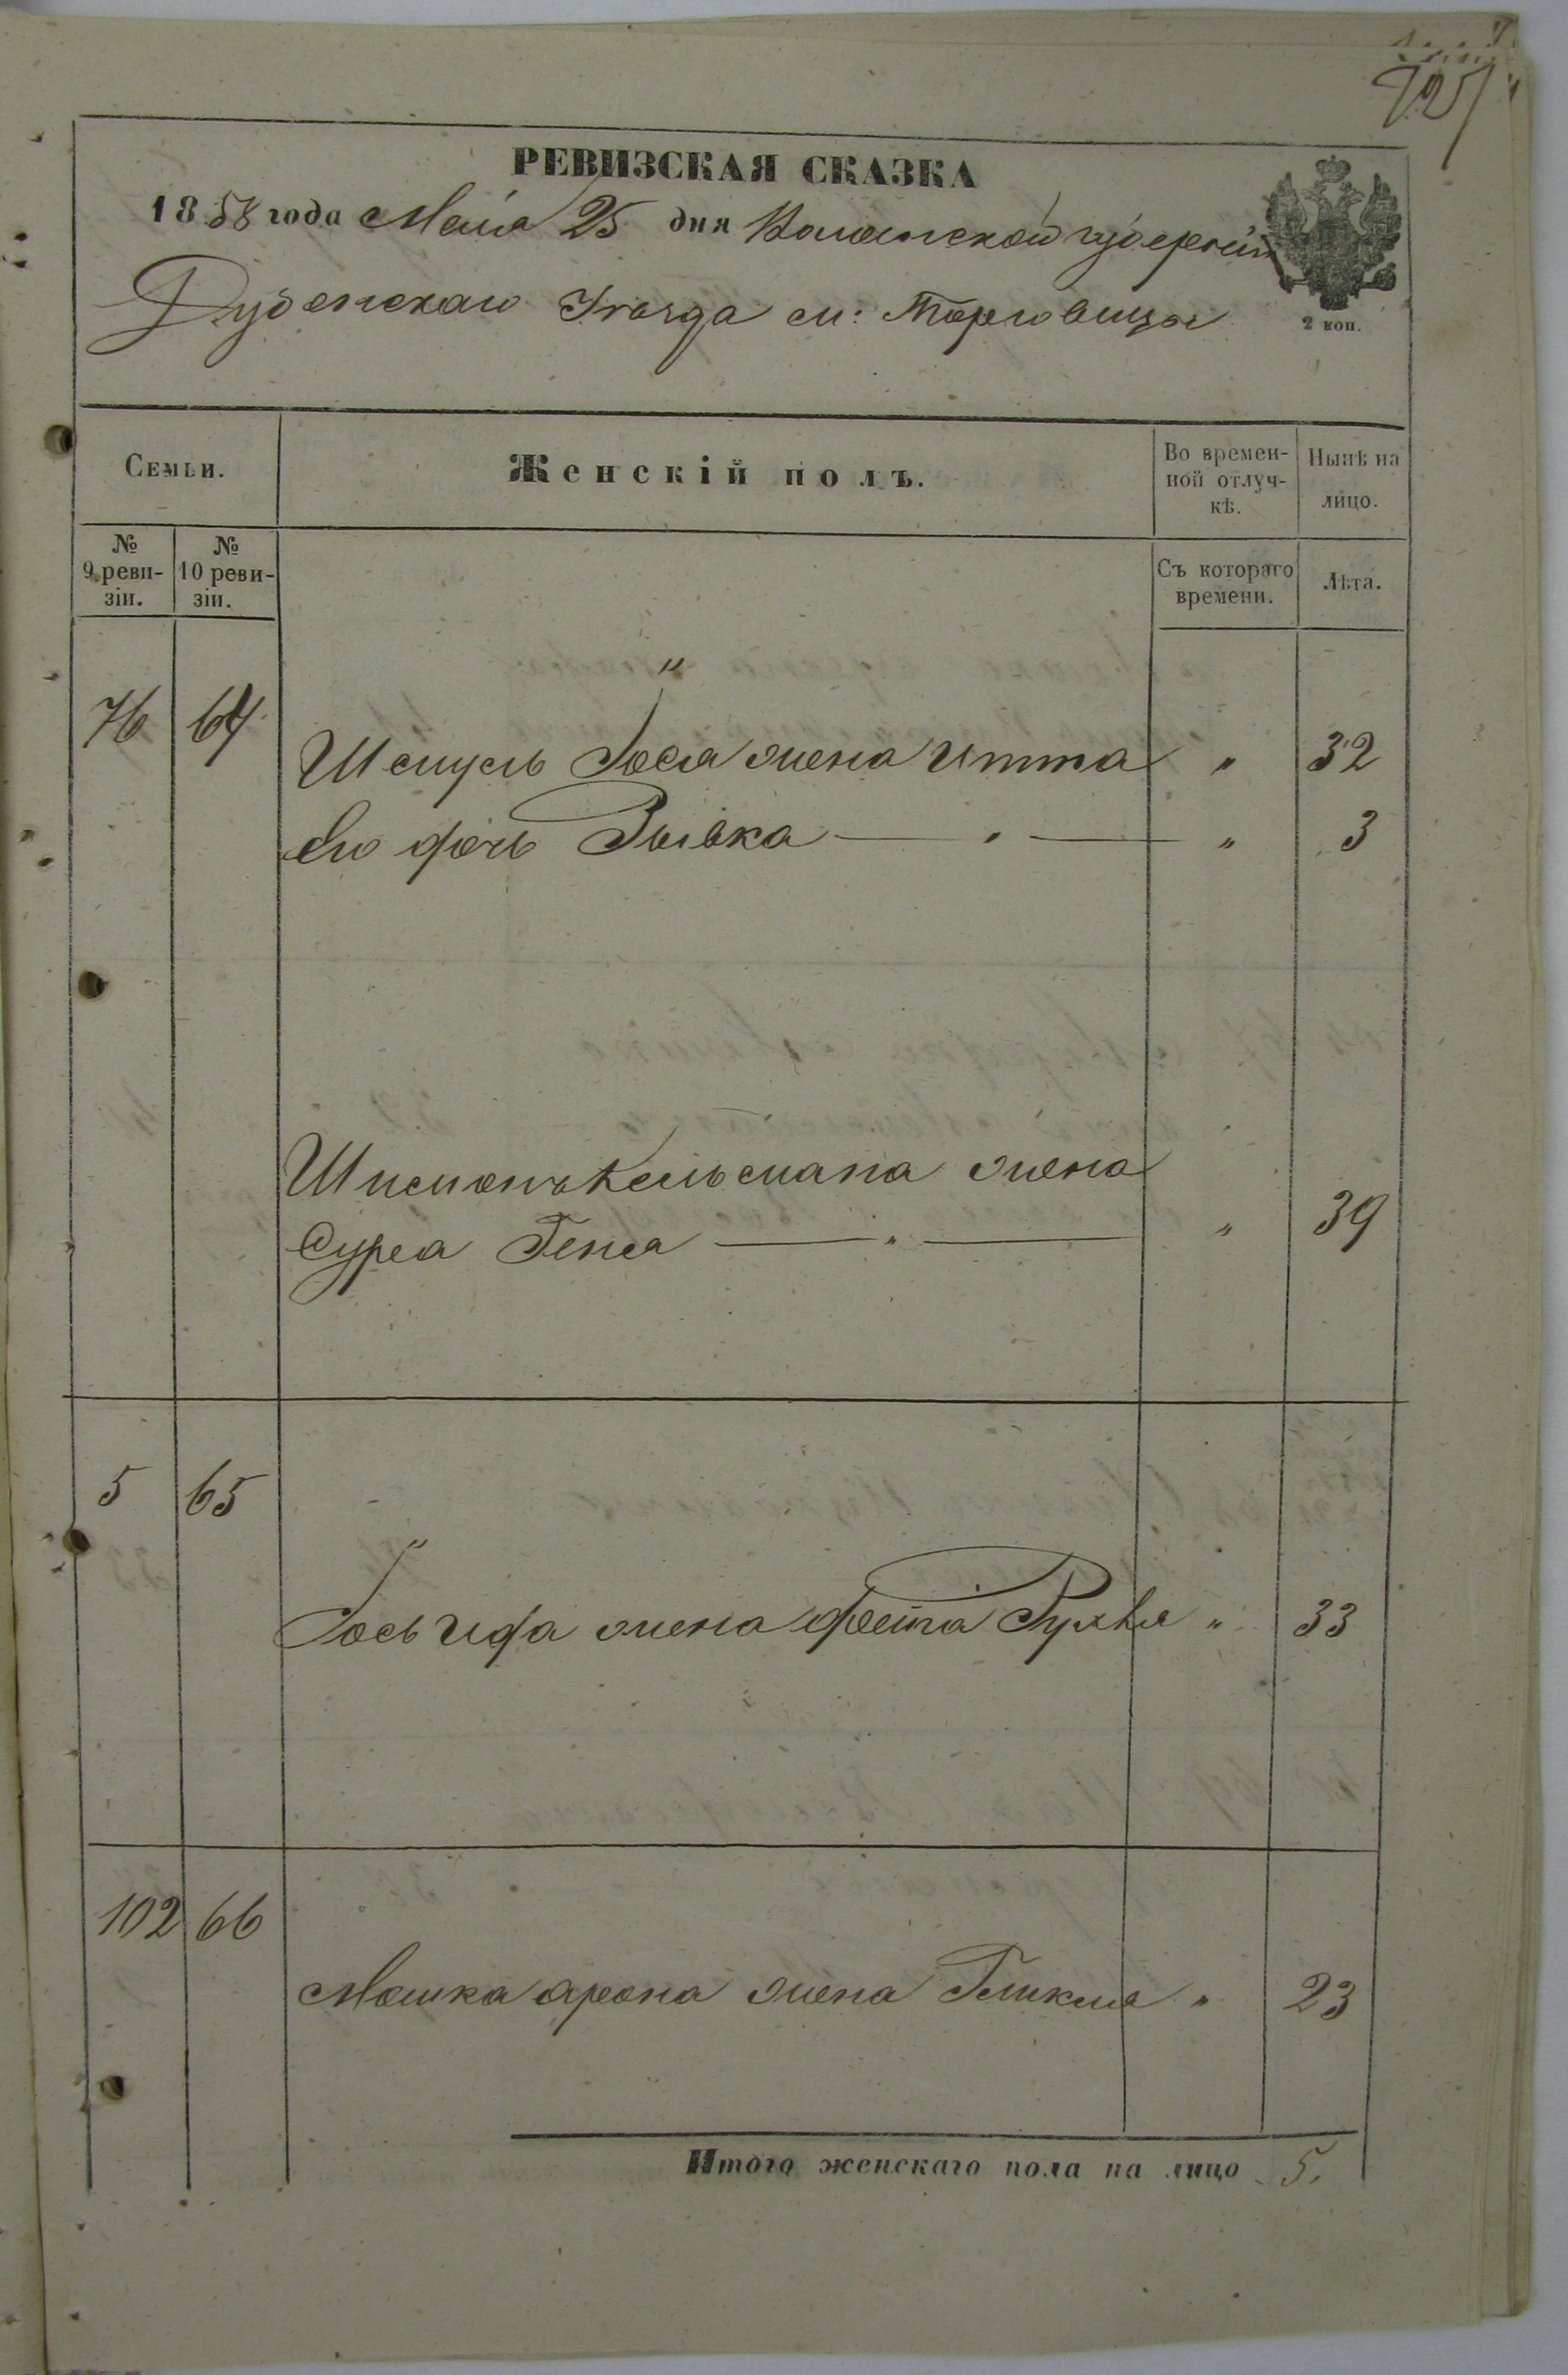 РЕВИЗСКАЯ СКАЗКА
1858 года Мая 25 дня Волынской губернии
Дубенскаго Уезда м: Торговицы
2 коп.
Семьи.
Женскій полъ.
Во времен-
ной отлуч-
кѣ.
Нынѣ на
лицо.
№
9 реви-
зіи.
№
10 реви-
зіи.
Съ котораго
времени.
Лѣта.
"
76 64 Шмуль Іося жена Итта " 32
Его дочь Рывка — " — " 3
Шлемы жена
Сура Геня — " — " 39
5 65
"
Іось жена Фейга Рухля " 33
102 66
Мошка арона жена Гликля " 23
Итого женскаго пола на лицо 5.